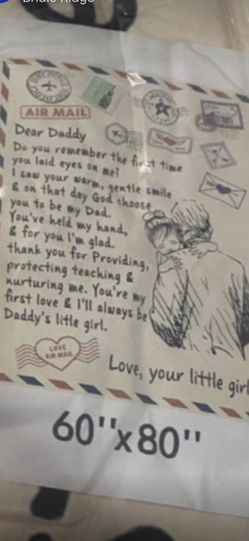 AIR MAIL
Dear Daddy
Do you remember the first time
you laid eyes on me?
I saw your warm, gentle smile
& on that day God choose
you to be my Dad.
You've held my hand,
& for you I'm glad.
thank you for Providing,
protecting teaching &
nurturing me. You're my
first love & I'll always be
Daddy's little girl.
LOVE
AIR MAIL
Love, your little girl
60"x80"